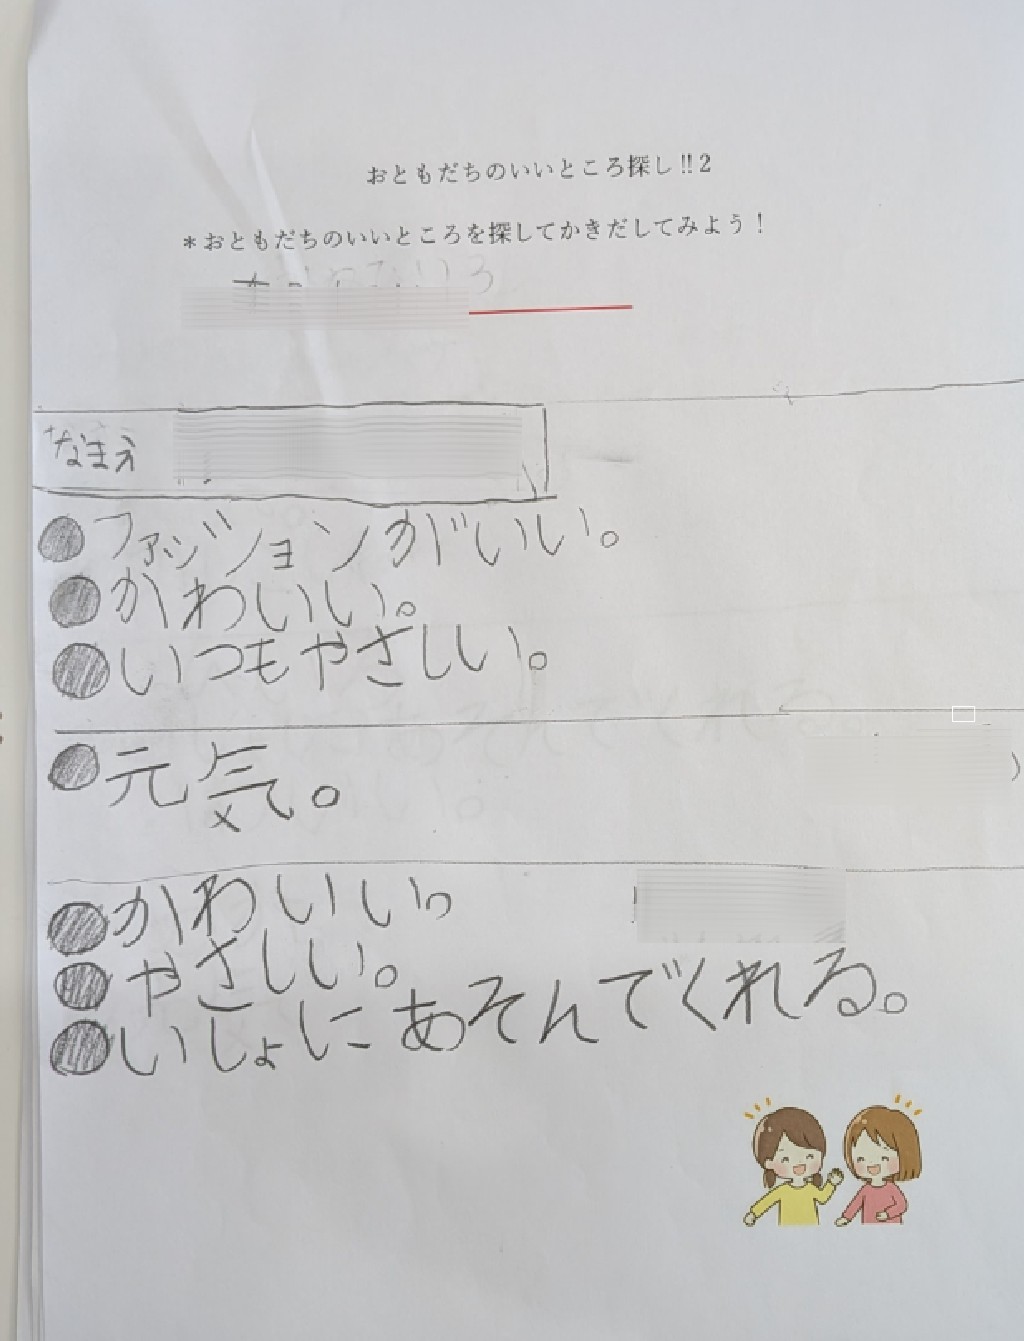 おともだちのいいところ探し!!2
*おともだちのいいところを探してかきだしてみよう!
なまえ
●ファッションがいい。
●かわいい。
●いつもやさしい。
●元気。
●かわいい。
●やさしい。
●いしょにあそんでくれる。